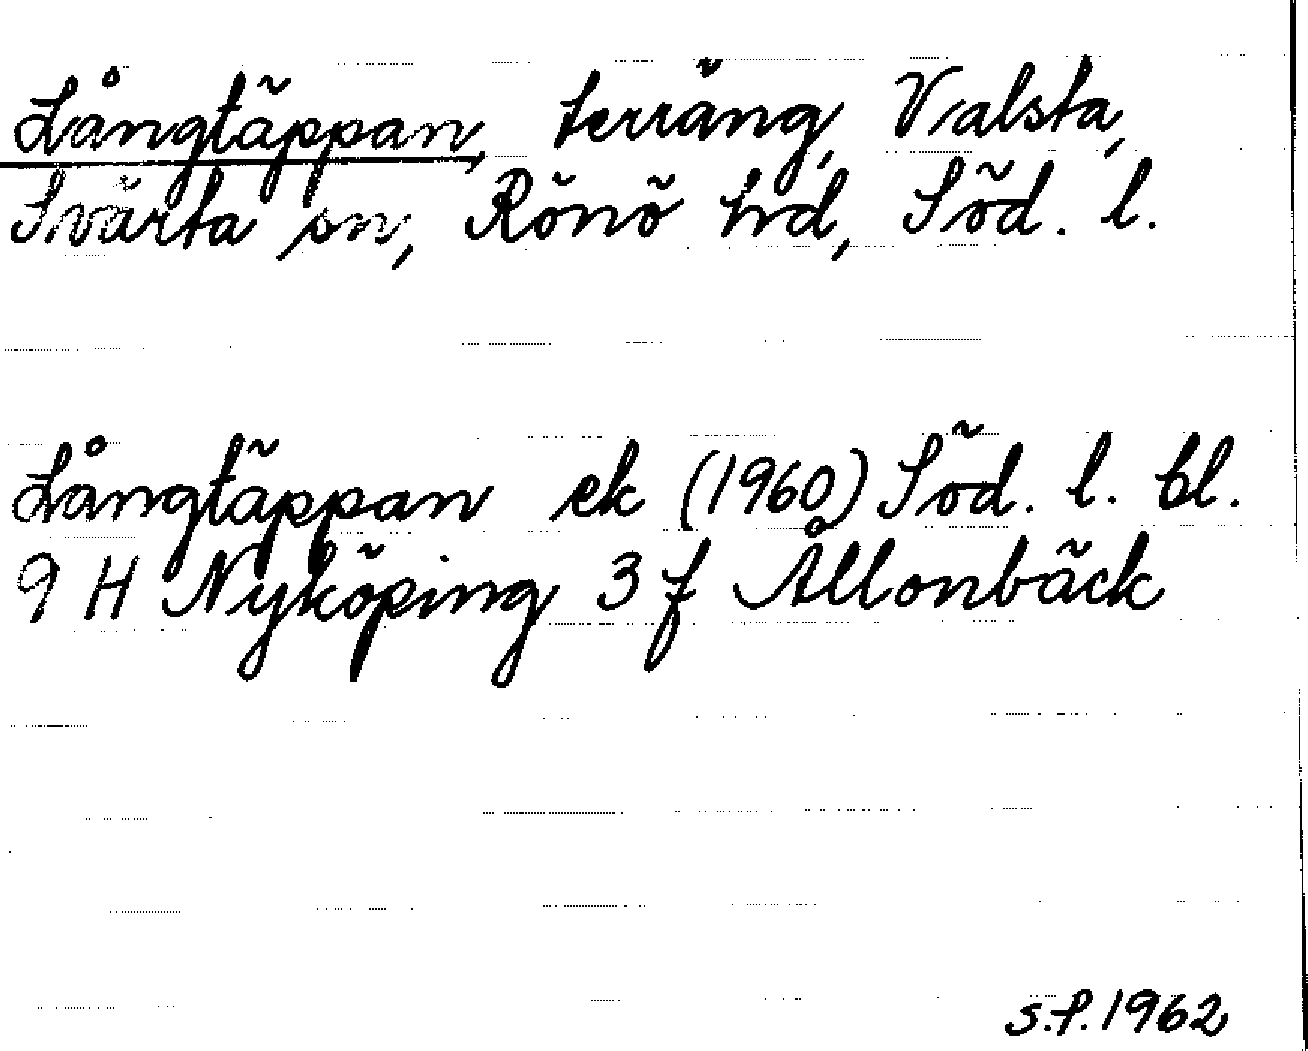 Långtäppan, terräng, Valsta,
Svärta sn, Rönö hd, Söd. l.
Långtäppan ek (1960) Söd. l. bl.
9 H Nyköping 3 f Ållonbäck
S.P. 1962